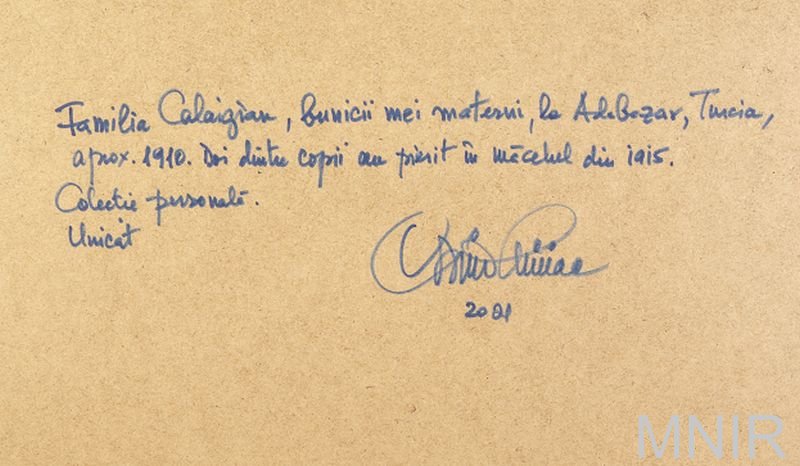 Familia Calaigian, bunicii mei materni, la AdaBazar, Turcia,
aprox. 1910. Doi dintre copii au pierit în măcelul din 1915.
Colecție personală.
Unicat
2021
MNIR